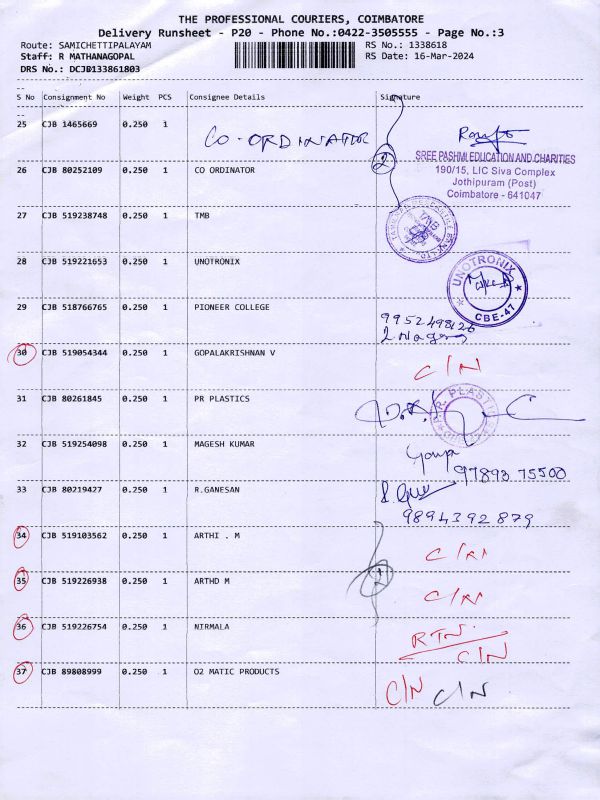 THE PROFESSIONAL COURIERS, COIMBATORE
Delivery Runsheet - P20 - Phone No.:0422-3505555 - Page No.:3
Route: SAMICHETTIPALAYAM RS No.: 1338618
Staff: R MATHANAGOPAL RS Date: 16-Mar-2024
DRS No.: DCJB133861803
S No Consignment No Weight PCS Consignee Details Signature
25 CJB 1465669 0.250 1 CO-ORDINATOR
2
SREE PASHMI EDUCATION AND CHARITIES
190/15, LIC Siva Complex
Jothipuram (Post)
Coimbatore - 641047
26 CJB 80252109 0.250 1 CO ORDINATOR
27 CJB 519238748 0.250 1 TMB
TMB
28 CJB 519221653 0.250 1 UNOTRONIX
UNOTRONIX
CBE-47
29 CJB 518766765 0.250 1 PIONEER COLLEGE
9952498126
30 CJB 519054344 0.250 1 GOPALAKRISHNAN V C/N
31 CJB 80261845 0.250 1 PR PLASTICS
32 CJB 519254098 0.250 1 MAGESH KUMAR
97893 75500
33 CJB 80219427 0.250 1 R.GANESAN
9894392879
34 CJB 519103562 0.250 1 ARTHI . M C/N
35 CJB 519226938 0.250 1 ARTHD M C/N
36 CJB 519226754 0.250 1 NIRMALA RTN
C/N
37 CJB 89808999 0.250 1 O2 MATIC PRODUCTS C/N C/N